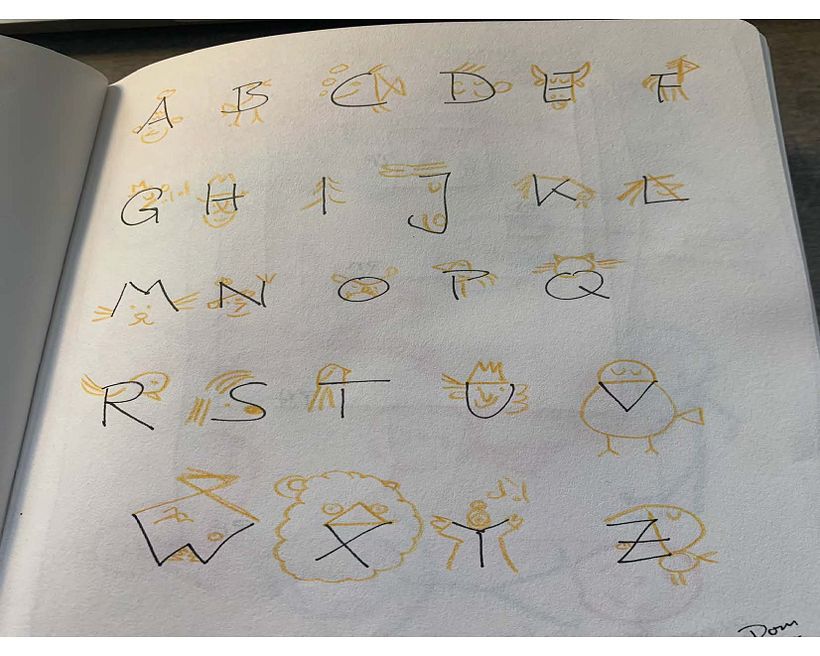 A B C D E F
G H I J K L
M N O P Q
R S T U V
W X Y Z
Dom